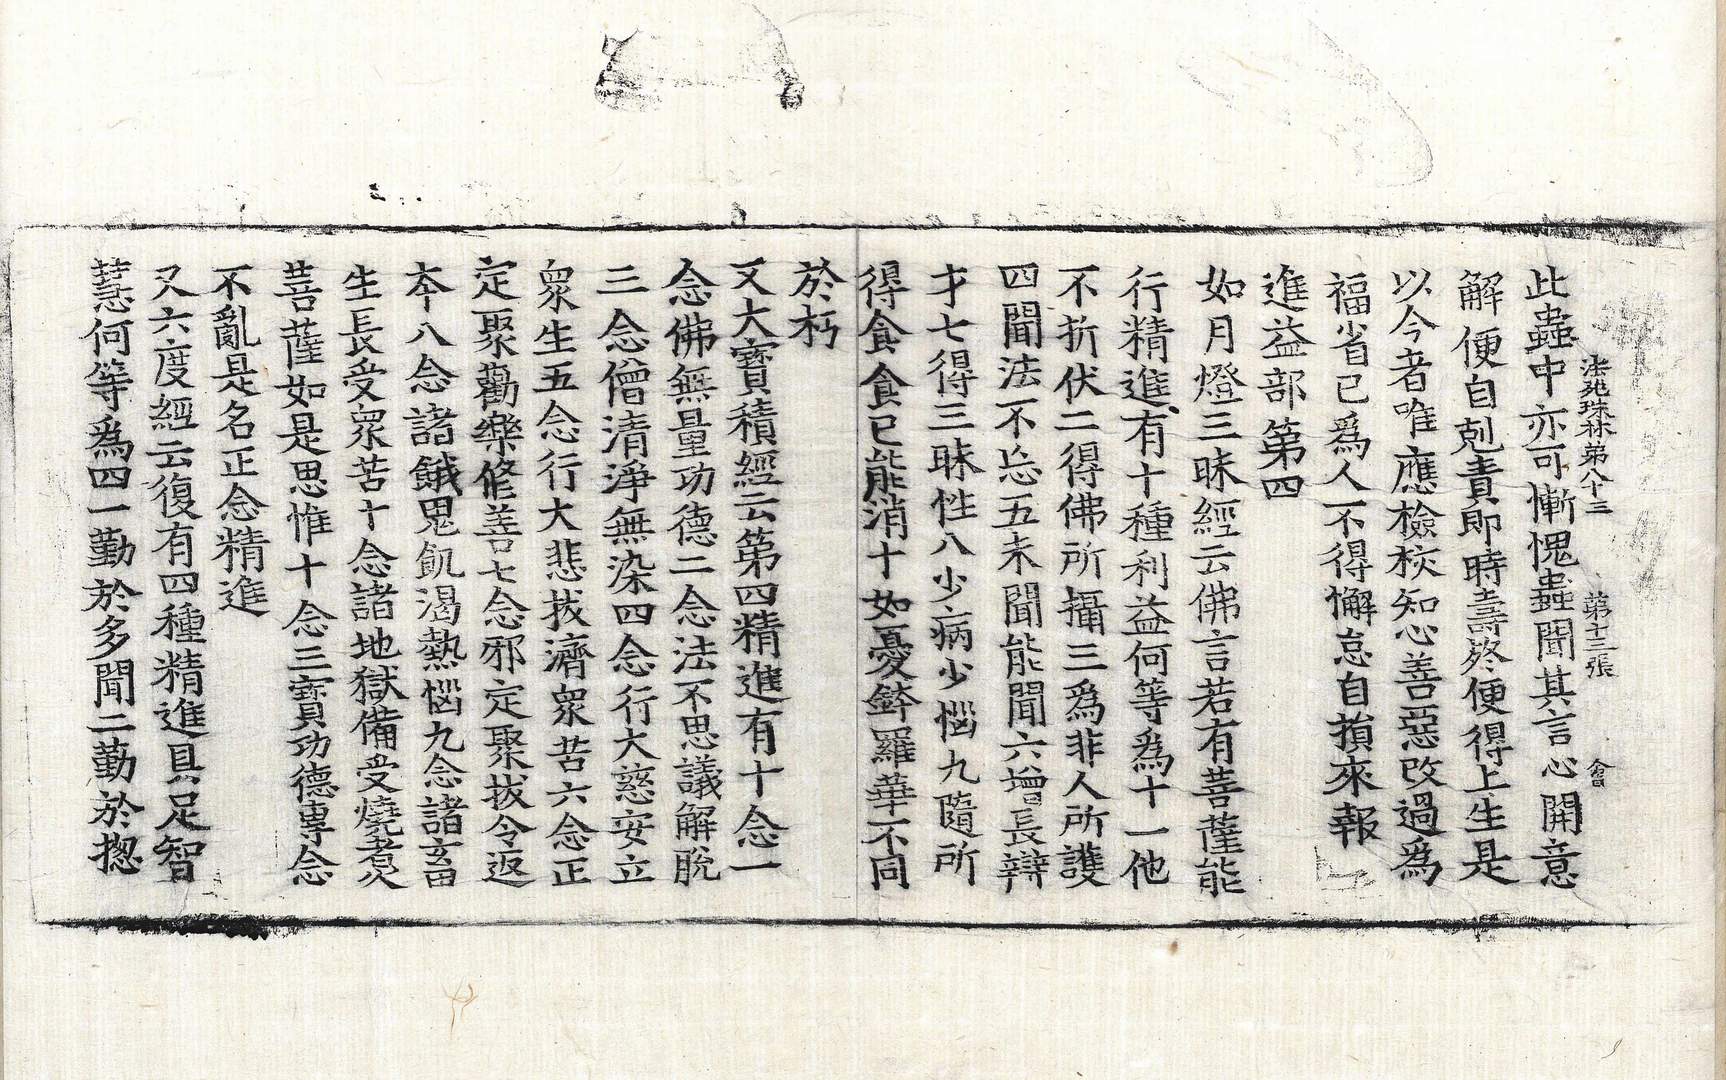 法苑珠林第八十三 第十三張 會
此蟲中亦可慚愧蟲聞其言心開意
解便自剋責即時壽終便得上生是
以今者唯應檢校知心善惡改過爲
福省已爲人不得懈怠自損來報
進益部第四
如月燈三昧經云佛言若有菩薩能
行精進有十種利益何等爲十一他
不折伏二得佛所攝三爲非人所護
四聞法不忘五未聞能聞六增長辯
才七得三昧性八少病少惱九隨所
得食食已能消十如憂鉢羅華不同
於杇
又大寶積經云第四精進有十念一
念佛無量功德二念法不思議解脫
三念僧清淨無染四念行大慈安立
衆生五念行大悲拔濟衆苦六念正
定聚勸樂修善七念邪定聚拔令返
本八念諸餓鬼飢渴熱惱九念諸畜
生長受衆苦十念諸地獄備受燒煑
菩薩如是思惟十念三寶功德專念
不亂是名正念精進
又六度經云復有四種精進具足智
慧何等爲四一勤於多聞二勤於揔